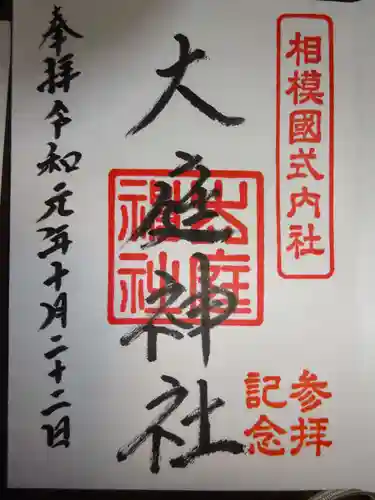 相模國式内社
大庭神社
大庭神社
参拝
記念
奉拝令和元年十月二十二日